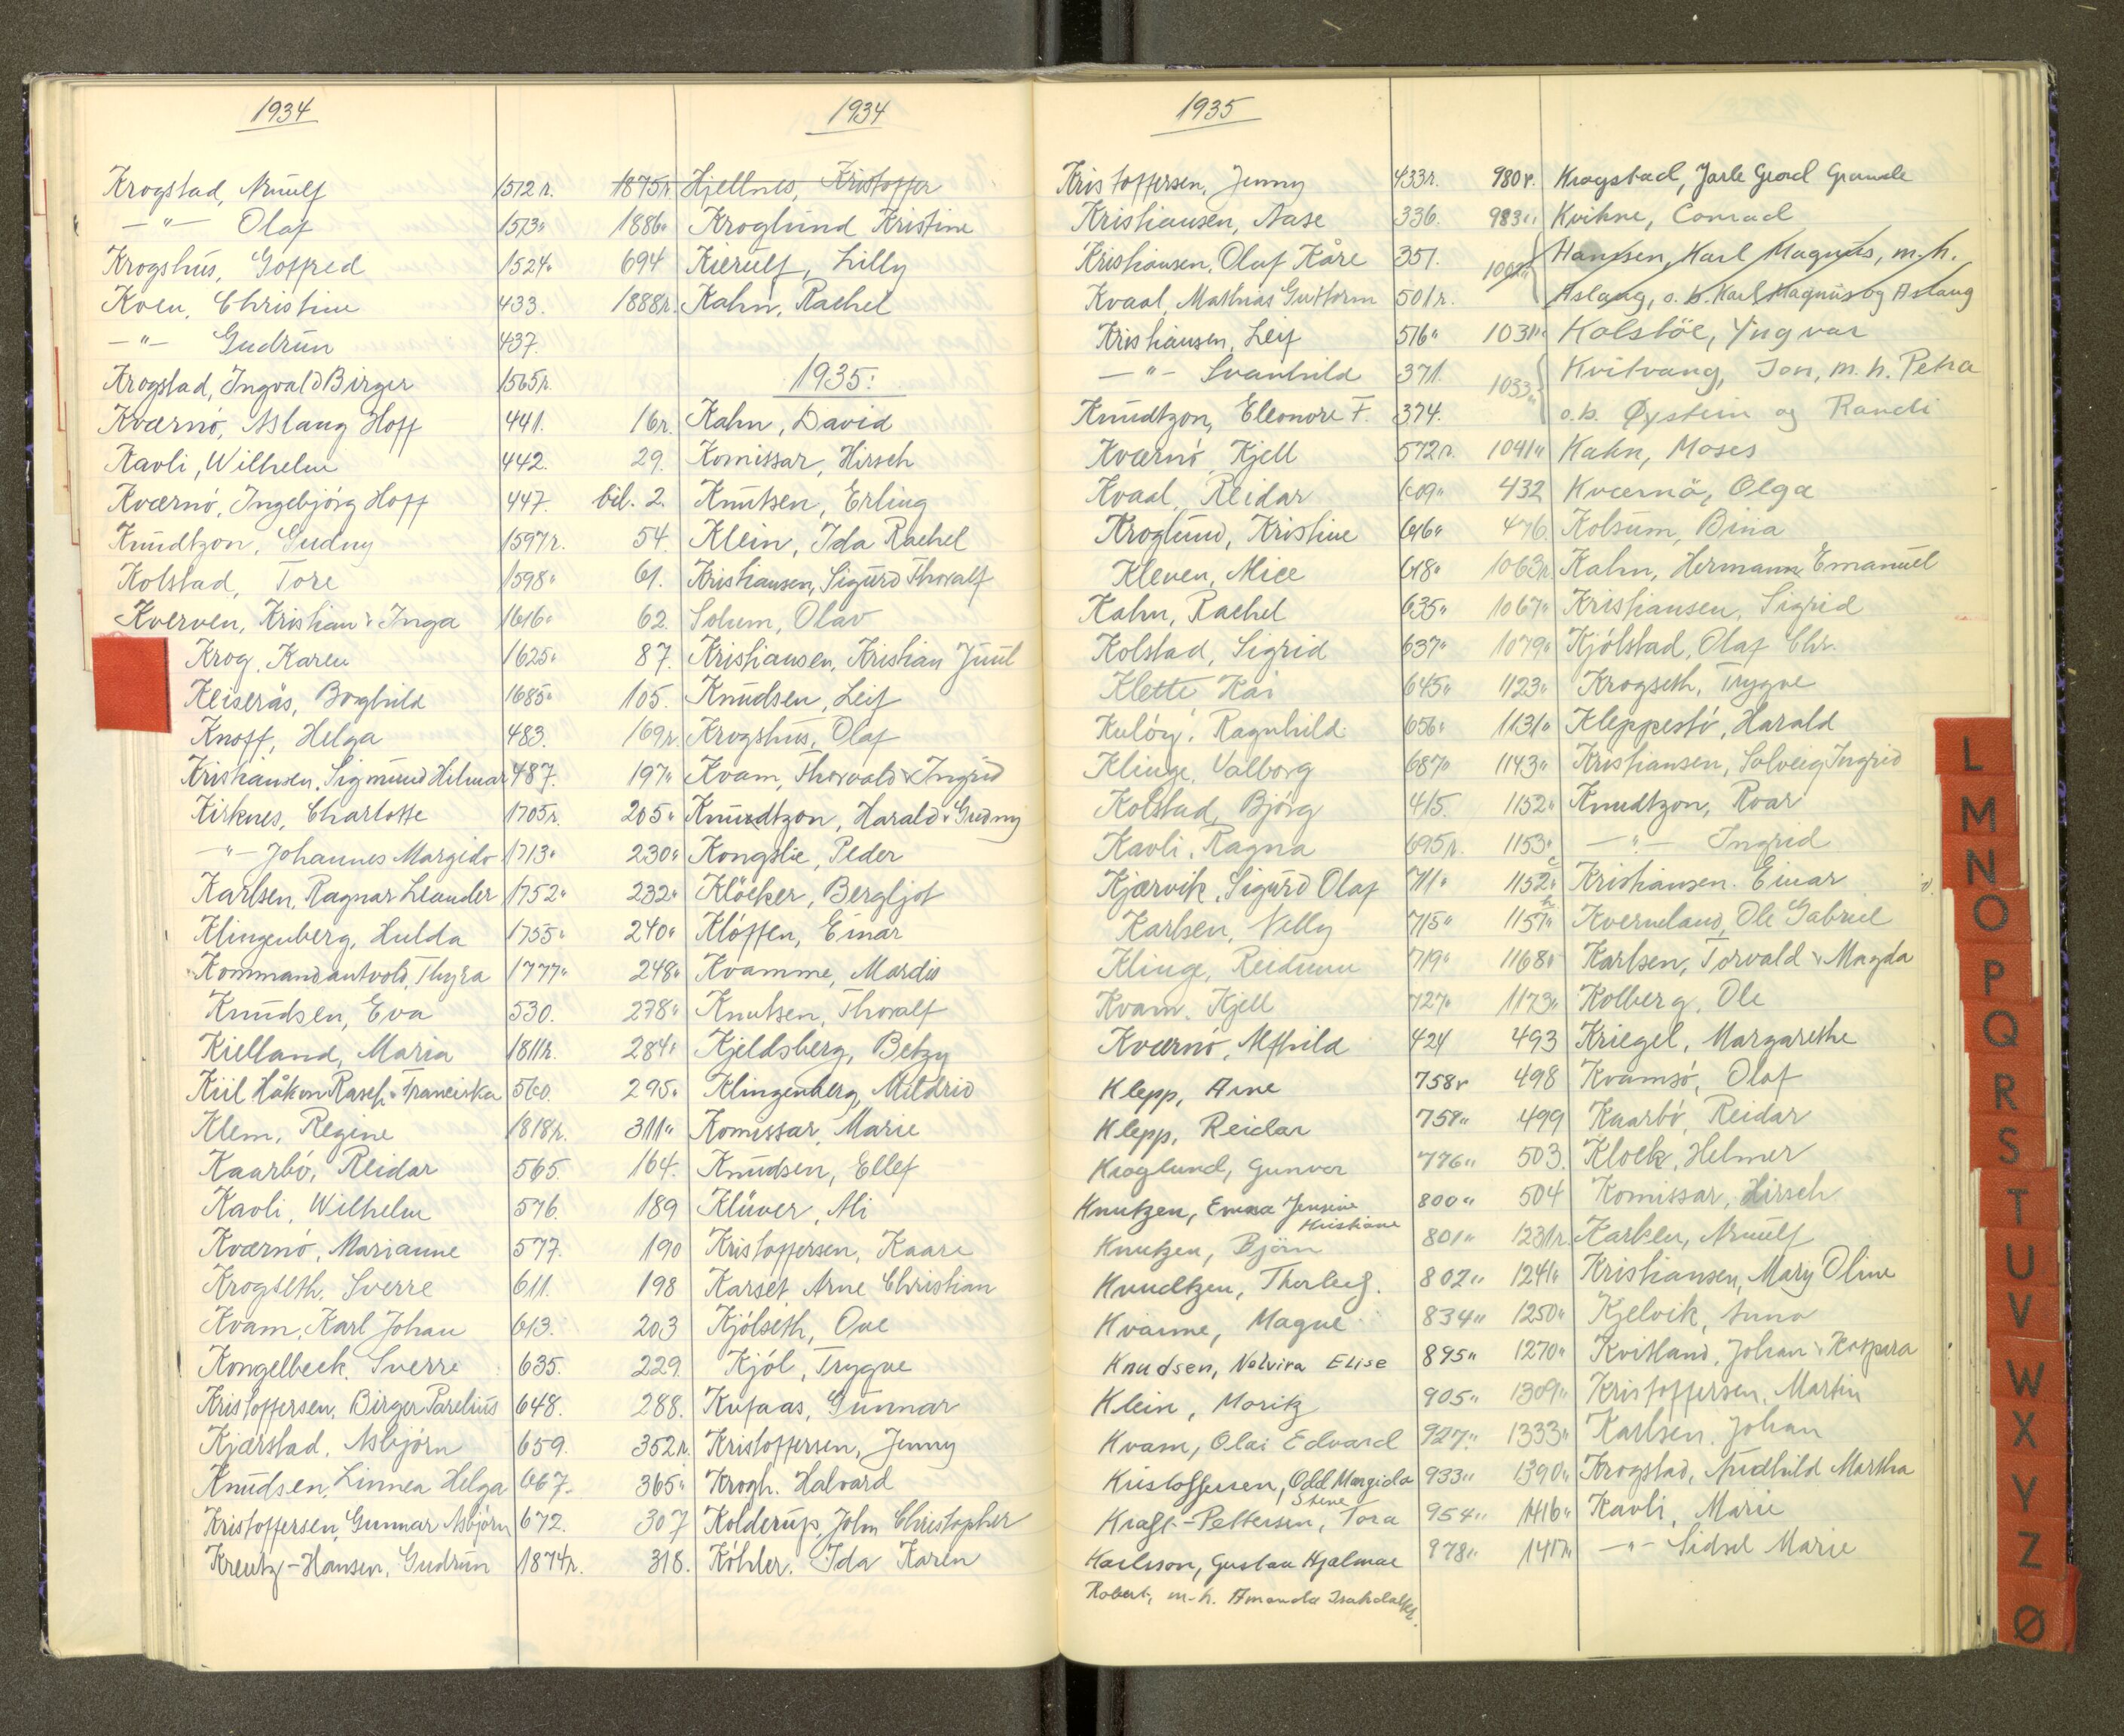 1934
Krogstad, Arnulf 1512 r.
—"— Olaf 1513 "
Krogshus, Goffred 1524 "
Koen, Christine 433.
—"— Gudrun 437.
Krogstad, Ingvald Birger 1565 r.
Kværnø, Aslaug Hoff 441.
Kavli, Wilhelm 442.
Kværnø, Ingebjørg Hoff 447.
Knudtzon, Gudny 1597 r.
Kolstad, Tore 1598 "
Kverven, Kristian & Inga 1616 "
Krog, Karen 1625 "
Keiserås, Borghild 1685 "
Knoff, Helga 483.
Kristiansen, Sigmund Hilmar 487.
Kirknes, Charlotte 1705 r.
—"— Johannes Margido 1713 "
Karlsen, Ragnar Leander 1752 "
Klingenberg, Hulda 1755 "
Kommandantvold, Thyra 1777 "
Knudsen, Eva 530.
Kielland, Maria 1811 r.
Kiil Håkon Rasch & Franciska 560.
Klem, Regine 1818 r.
Kaarbø, Reidar 565.
Kavli, Wilhelm 576.
Kværnø, Marianne 577.
Krogseth, Sverre 611.
Kvam, Karl Johan 613.
Kongelbeck, Sverre 635.
Kristoffersen, Birger Parelius 648.
Kjærstad, Asbjørn 659.
Knudsen, Linnea Helga 667.
Kristoffersen, Gunnar Asbjørn 672.
Kreutz-Hansen, Gudrun 1874 r.
1934
1875 r. Hjellnes, Kristoffer
1886 " Kroglund Kristine
694 Kierulf, Lilly
1888 r. Kahn, Rachel
1935:
16 r. Kahn, David
29. Komissar, Hirsch
bil. 2. Knutsen, Erling
54. Klein, Ida Rachel
61. Kristiansen, Sigurd Thoralf
62. Solum, Olav
87. Kristiansen, Kristian Juul
105. Knudsen, Leif
169 r. Krogshus, Olaf
197 " Kvam, Thorvald & Ingrid
205 " Knudtzon, Harald & Gudny
230 " Kongslie, Peder
232 " Klöcker, Bergljot
240 " Kløften, Einar
248 " Kvamme, Mardis
278 " Knutsen, Thoralf
284 " Kjeldsberg, Betzy
295 " Klingenberg, Mildrid
311 " Komissar, Marie
164. Knudsen, Ellef
189 Klüver, Ali
190 Kristoffersen, Kaare
198 Karset Arne Christian
203 Kjølseth, Ove
229 Kjøl, Trygve
288. Kufaas, Gunnar
352 r. Kristoffersen, Jenny
365 " Krogh, Halvard
307 Kolderup, John Christopher
318. Köhler, Ida Karin
1935
Kristoffersen, Jenny 433 r.
Kristiansen, Aase 336.
Kristiansen, Olaf Kåre 351.
Kvaal, Mathias Guttorm 501 r.
Kristiansen, Leif 516 "
—"— Svanhild 371.
Knudtzon, Eleonore F. 374.
Kværnø, Kjell 572 r.
Kvaal, Reidar 609 "
Kroglund, Kristine 616 "
Kleven, Alice 618 "
Kahn, Rachel 635 "
Kolstad, Sigrid 637 "
Klette Kai 645 "
Kuløy, Ragnhild 656 "
Klinge, Valborg 687 "
Kolstad, Bjørg 415.
Kavli, Ragna 695 r.
Kjærvik, Sigurd Olaf 711 "
Karlsen, Nelly 715 "
Klinge, Reidunn 719 "
Kvam, Kjell 727 "
Kværnø, Alfhild 424
Klepp, Arne 758 r
Klepp, Reidar 759 "
Kroglund, Gunvor 776 "
Knutzen, Emma Jensine Kristiane 800 "
Knutzen, Björn 801 "
Knudtzen, Thorleif. 802 "
Kvamme, Magne 834 "
Knudsen, Nelvira Elise 895 "
Klein, Moritz 905 "
Kvam, Olai Edvard 927 "
Kristoffersen, Odd Margido 933 "
Kraft-Pettersen, Stene Tora 954 "
Karlsson, Gustav Hjalmar 978 "
Robert, m. h. Amanda Isaksdatter.
980 r. Krogstad, Jarle Gerd Grande
983 " Kvikne, Conrad
1002 " Hansen, Karl Magnus, m. h.
Aslaug, o. b. Karl Magnus og Aslaug
1031 " Kolstöe, Yngvar
1033 " Kvitvang, Jon, m. h. Petra
o. b. Øystein og Randi
1041 " Kahn, Moses
432 Kværnø, Olga
476. Kolsum, Bina
1063 r. Kahn, Hermann Emanuel
1067 " Kristiansen, Sigrid
1079 " Kjølstad, Olaf Chr.
1123 " Krogseth, Trygve
1131 " Kleppestø, Harald
1143 " Kristiansen, Solveig Ingrid
1152 " Knudtzon, Roar
1153 " —"— Ingrid
1152 c " Kristiansen. Einar
1157 " Kverneland, Ole Gabriel
1168 " Karlsen, Torvald & Magda
1173 " Kolberg, Ole
493 Kriegel, Margarethe
498 Kvamsø, Olaf
499 Kaarbø, Reidar
503. Klock, Helmer
504 Komissar, Hirsch
1231 r. Karlsen, Arnulf
1241 " Kristiansen, Mary Oline
1250 " Kjelvik, Anna
1270 " Kvisland, Johan & Kaspara
1309 " Kristoffersen, Martin
1333 " Karlsen, Johan
1390 " Krogstad, Audhild Martha
1416 " Kavli, Marie
1417 " —"— Sidsel Marie
L
M
N
O
P
Q
R
S
T
U
V
W
X
Y
Z
Ø